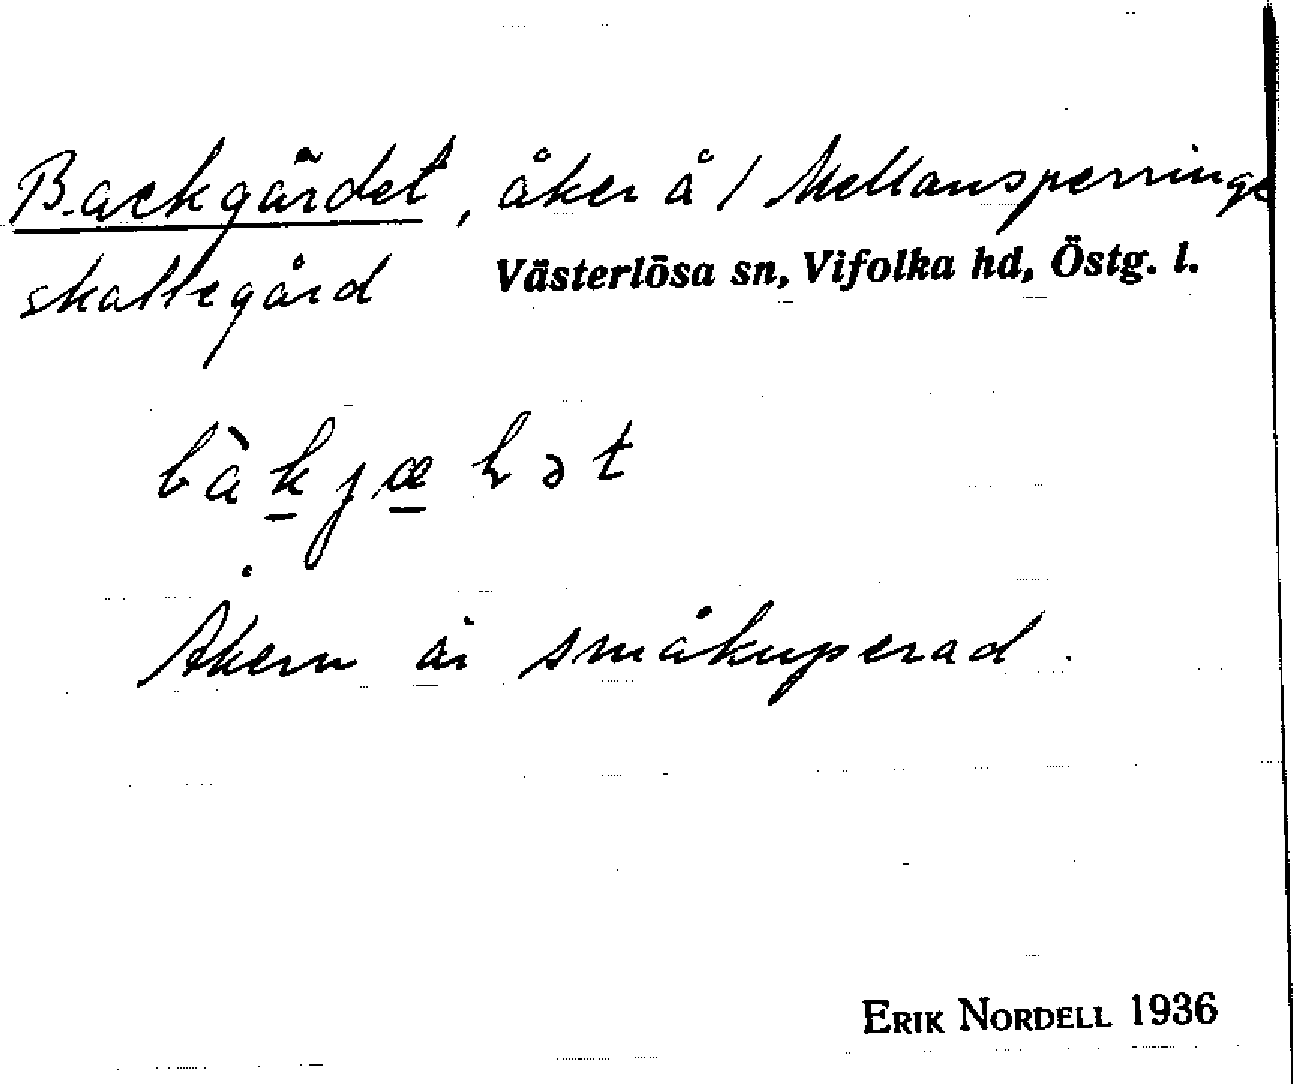 Backgärdet, åker å / Mellansperringe
skattegård Västerlösa sn, Vifolka hd, Östg. l.
bàkjæhət
Åkern är småkuperad.
ERIK NORDELL 1936